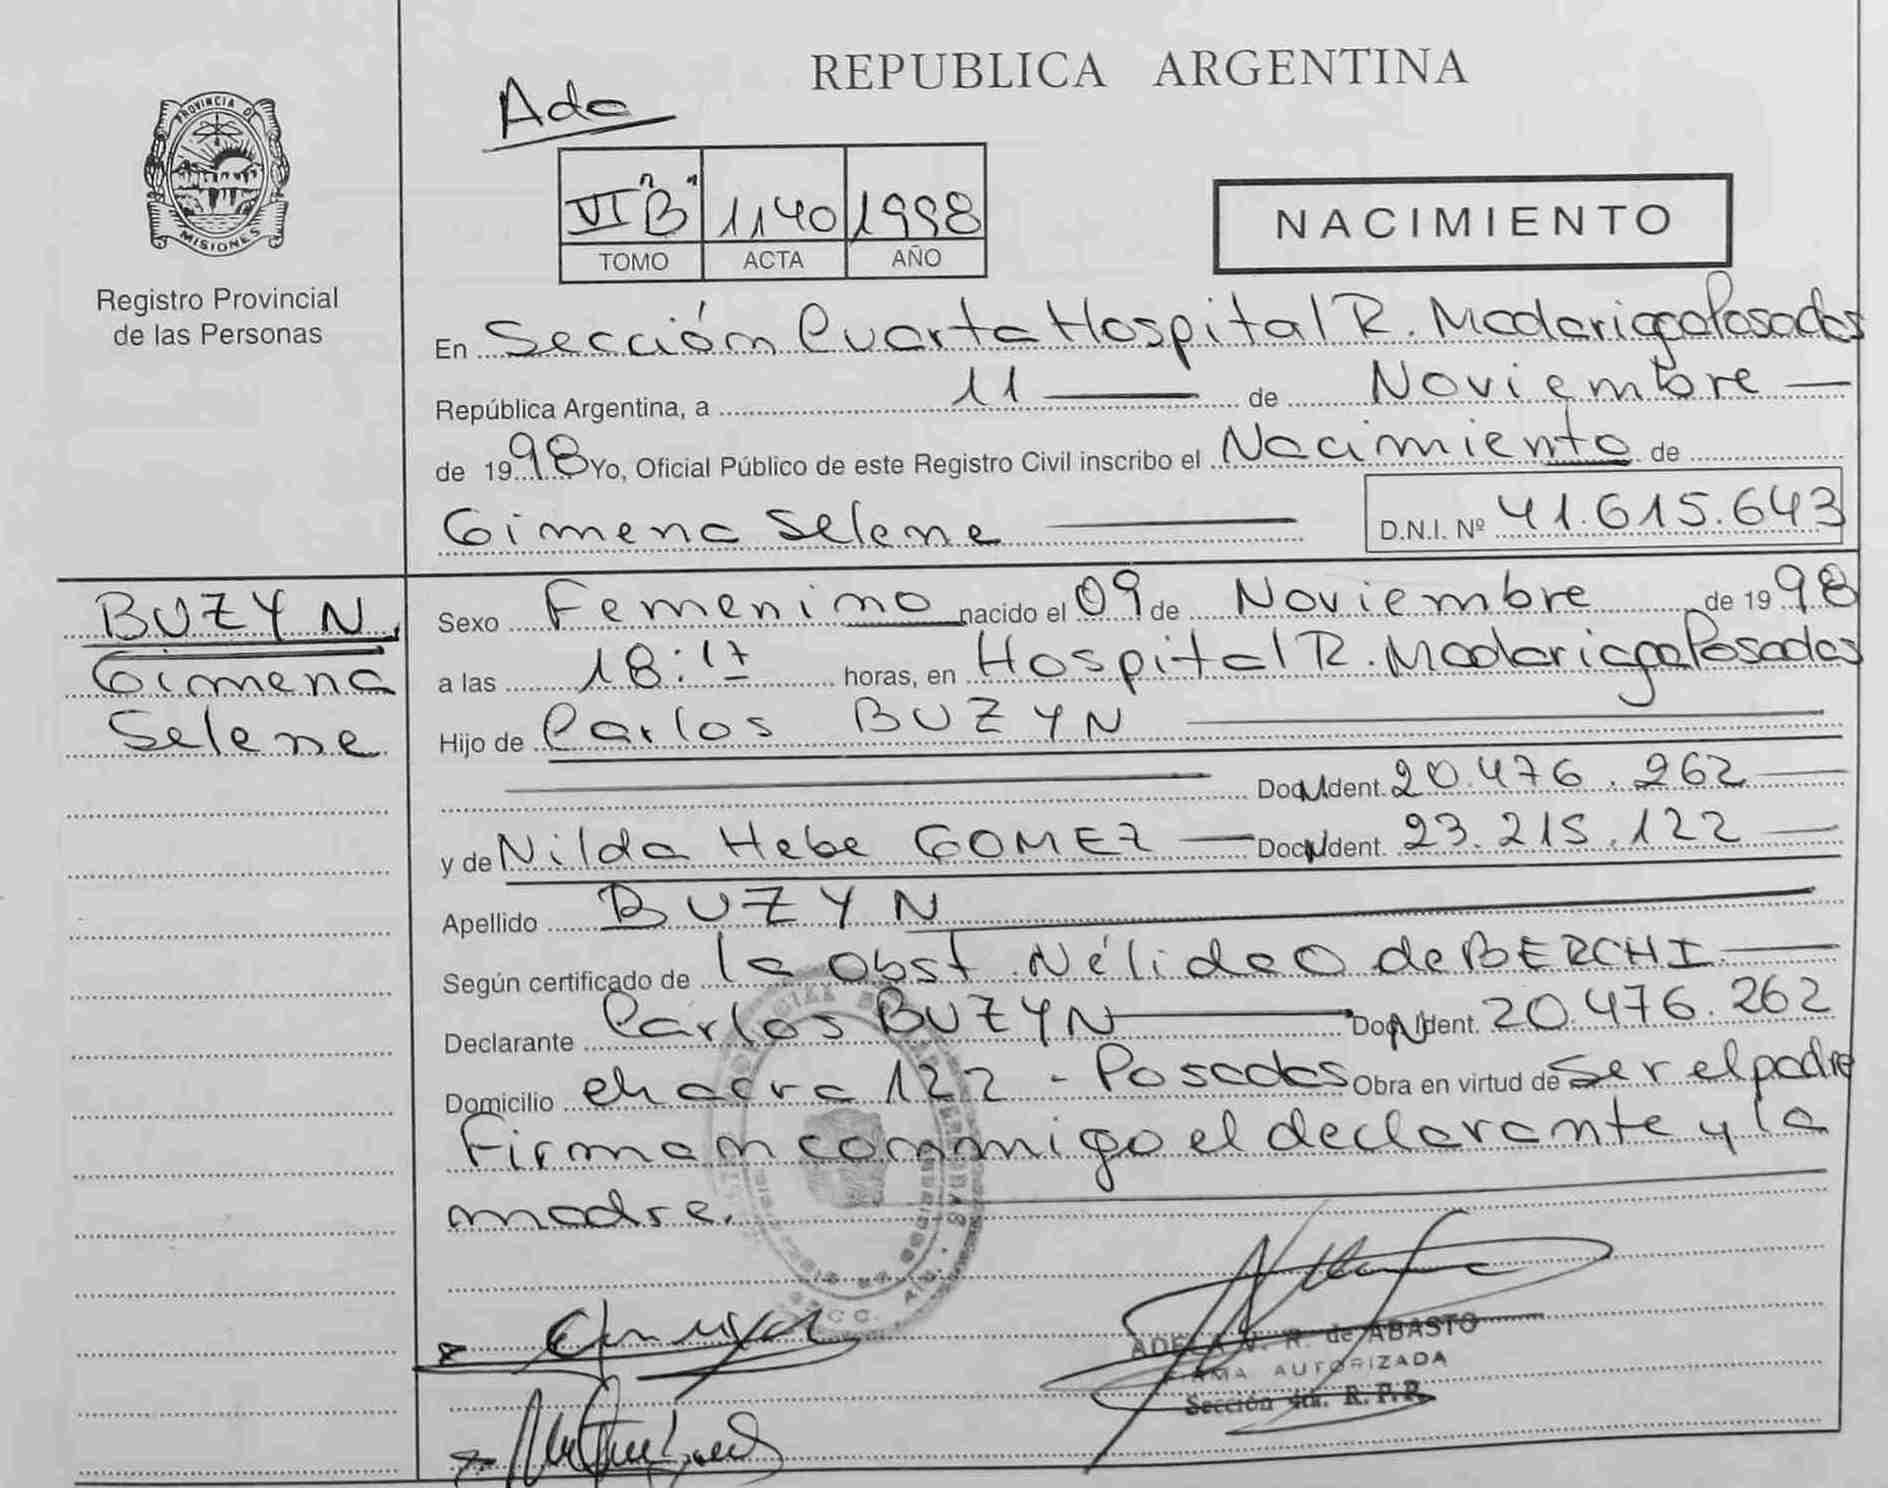 REPUBLICA ARGENTINA
PROVINCIA DE
MISIONES
Registro Provincial
de las Personas
Ada
VI "B" 1140 1998
TOMO ACTA AÑO
NACIMIENTO
En Sección Cuarta Hospital R. Madariaga Posadas
República Argentina, a 11 de Noviembre
de 1998 Yo, Oficial Público de este Registro Civil inscribo el Nacimiento de
Gimena Selene D.N.I. Nº 41.615.643
BUZYN,
Gimena
Selene
Sexo Femenino nacido el 09 de Noviembre de 1998
a las 18:17 horas, en Hospital R. Madariaga Posadas
Hijo de Carlos BUZYN
Doc. Ident. 20.476.262
y de Nilda Hebe GOMEZ Doc. Ident. 23.215.122
Apellido BUZYN
Según certificado de la Obst. Nélida O de BERCHI
Declarante Carlos BUZYN Doc. Ident. 20.476.262
Domicilio chacra 122 - Posadas Obra en virtud de Ser el padre
Firman conmigo el declarante y la
madre.
ADELA N. R. de ABASTO
FIRMA AUTORIZADA
Sección 4ta. R.P.P.